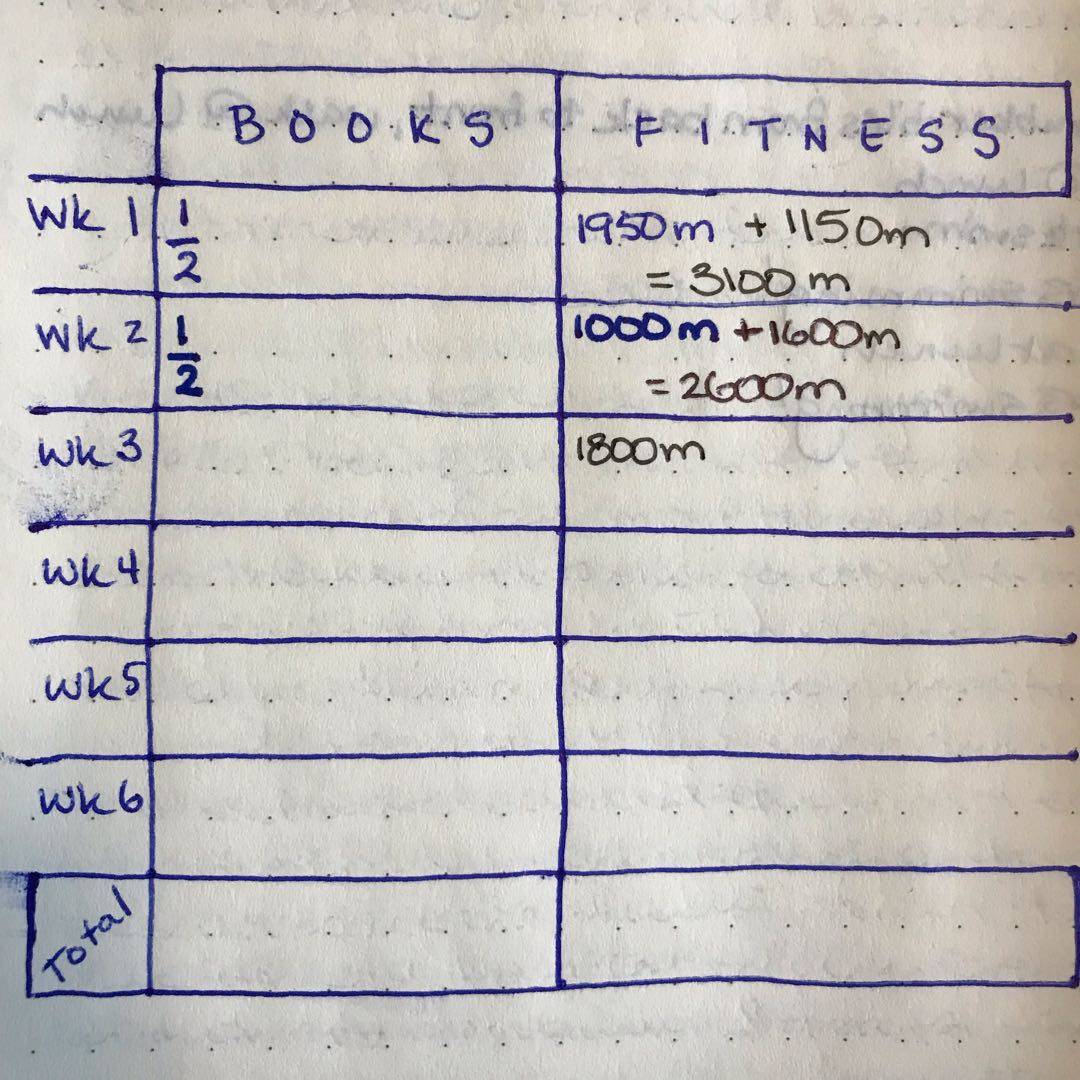 BOOKS FITNESS
Wk 1 1/2 1950m + 1150m
= 3100m
Wk 2 1/2 1000m + 1600m
= 2600m
Wk 3 1800m
Wk 4
Wk 5
Wk 6
Total